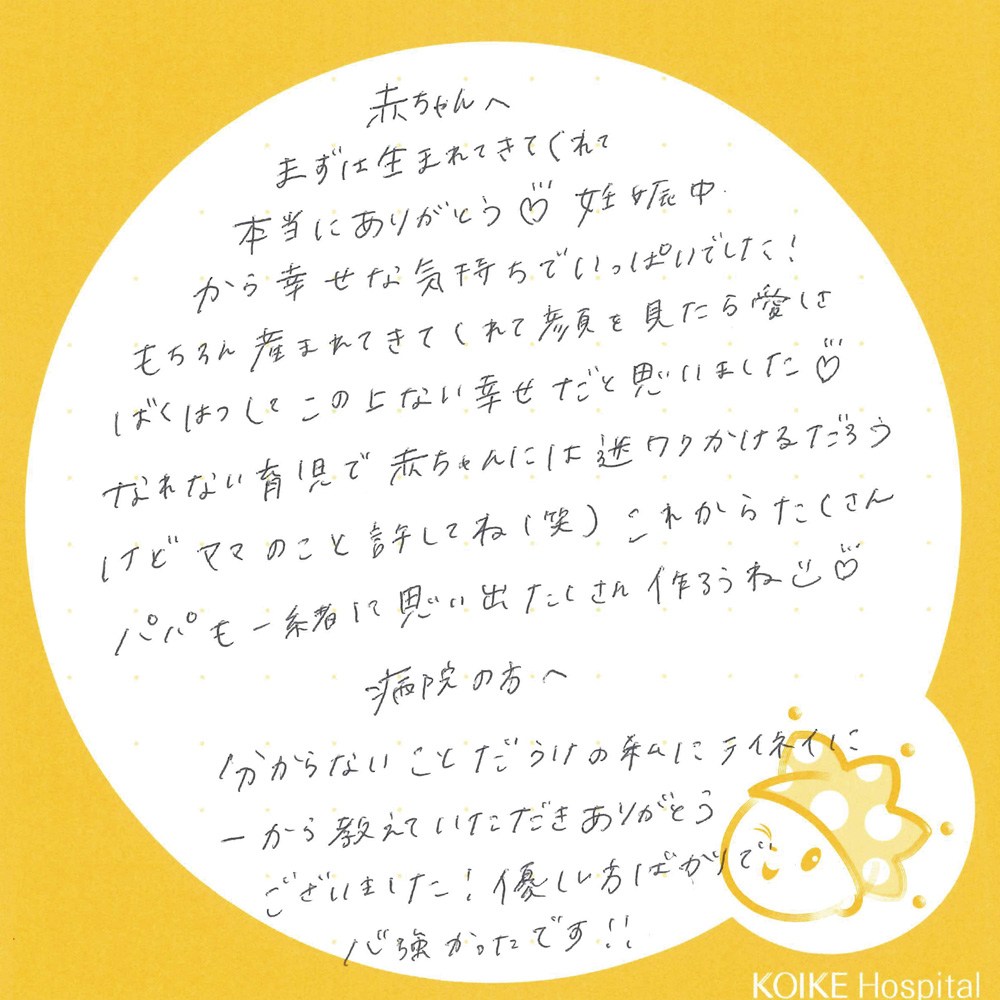 赤ちゃんへ
まずは生まれてきてくれて
本当にありがとう♡ 妊娠中
から幸せな気持ちでいっぱいでした!
もちろん産まれてきてくれて顔を見たら愛しさ
ばくはつしてこの上ない幸せだと思いました♡
なれない育児で赤ちゃんには迷ワクかけるだろう
けどママのこと許してね(笑) これからたくさん
パパも一緒に思い出たくさん作ろうね♡
病院の方へ
分からないことだらけの私にテイネイに
一から教えていただきありがとう
ございました!優しい方ばかりで
心強かったです!!
KOIKE Hospital